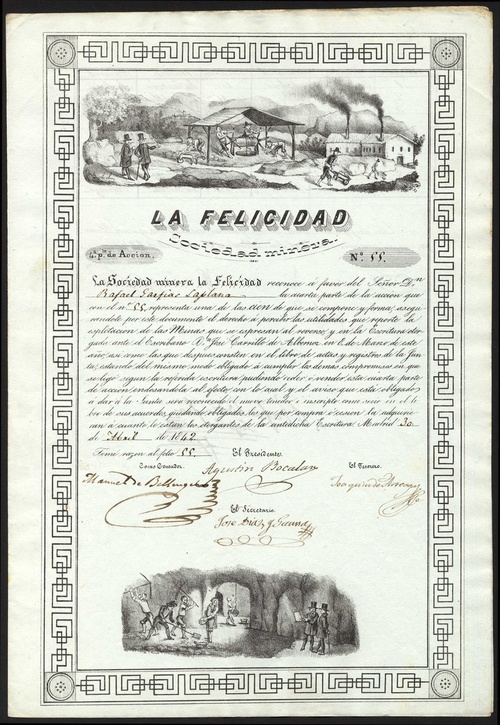 LA FELICIDAD
Sociedad minera.
4ª p.te de Accion.
Nº 55.
La Sociedad minera la Felicidad reconoce á favor del Señor Dn
Rafael Garfias Laplana la cuarta parte de la accion que
con el nº 55, representa una de las cien de que se compone y forma, asegu
randole por este documento el derecho á percibir las utilidades que reporte la
esplotacion de las Minas que se espresan al reverso y en la Escritura otor
gada ante el Escribano Dn José Carrillo de Albornoz en 8 de Marzo de este
año; asi como las que despues consten en el libro de actas y registro de la Jun
ta; estando del mismo modo obligado á cumplir los demas compromisos en que
se ligó segun la referida escritura pudiendo ceder ó vender esta cuarta parte
de accion endosandola al efecto con lo cual y el aviso que está obligado
á dar á la Junta será reconocido el nuevo tenedor é inscripto como socio en el li
bro de sus acuerdos, quedando obligados los que por compra ó cesion la adquie
ran á cuanto lo estan los otorgantes de la antedicha Escritura. Madrid 30
de Abril de 1842
Tomé razon al folio 55
El Contador.
El Presidente.
El Tesorero.
Manuel de
Agustin Bocalan
Joaquin de
El Secretario.
José Diaz y